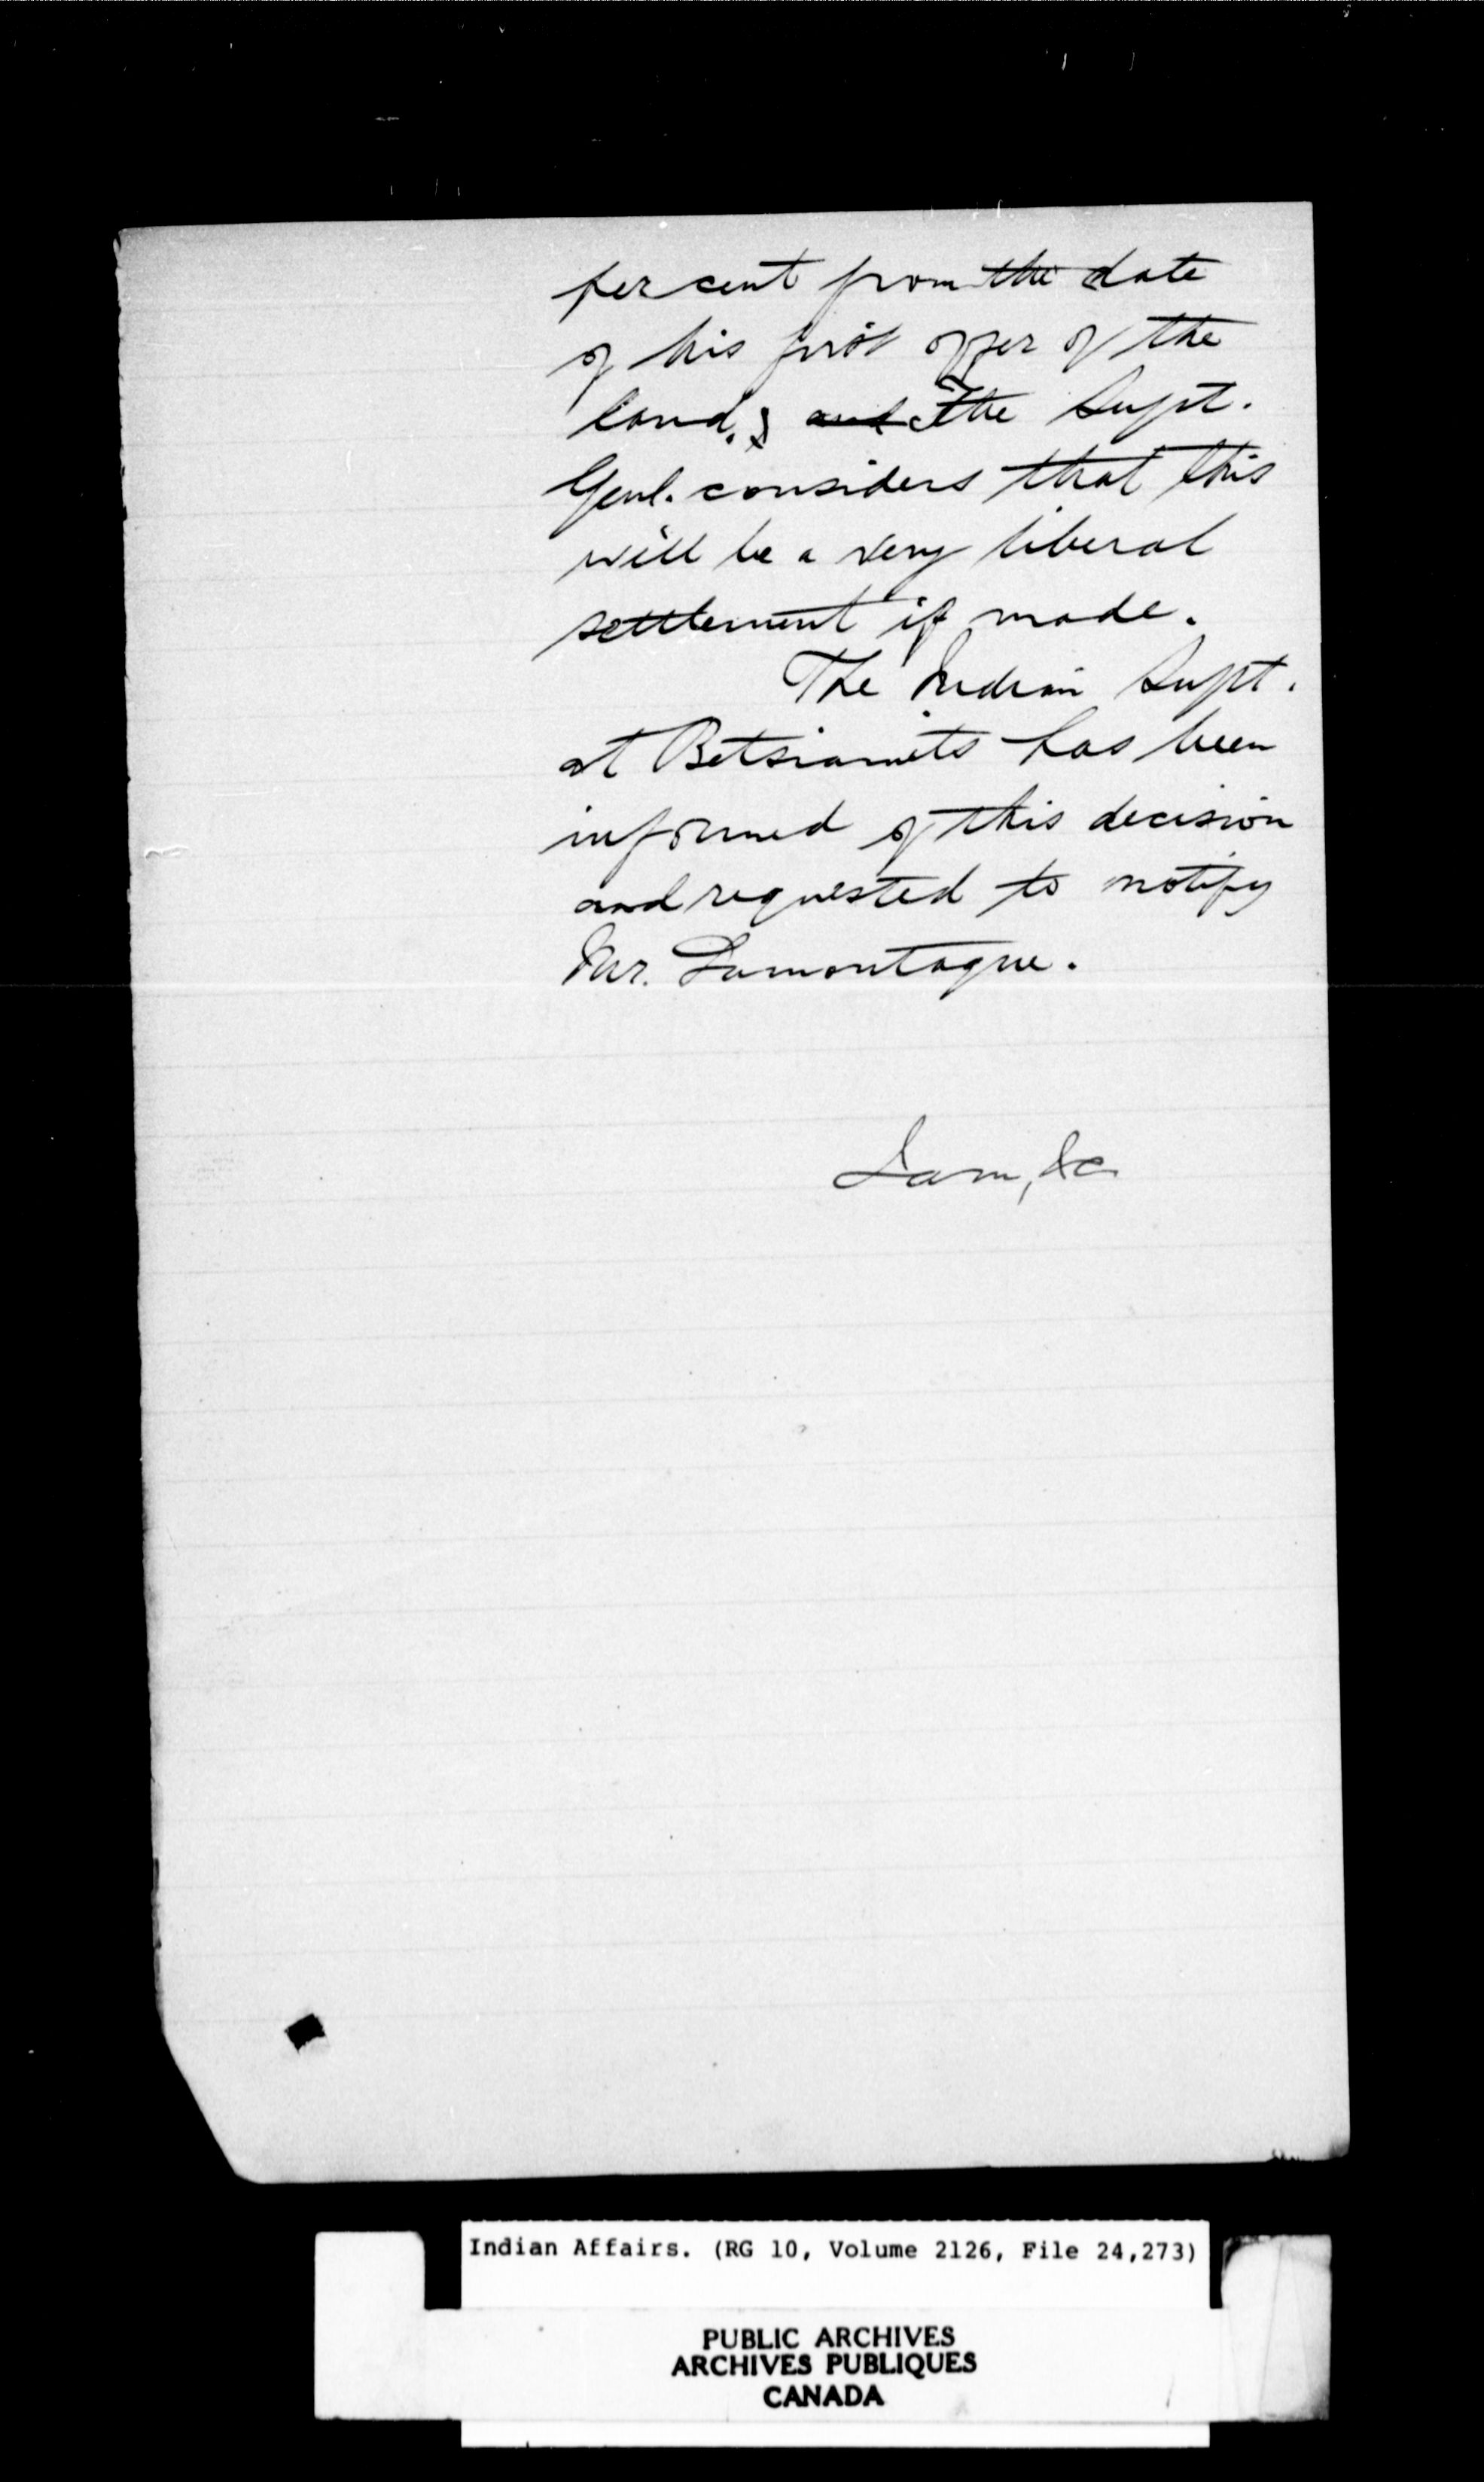 per cent from the date
of his first offer of the
land. and The Supt.
Genl. considers that this
will be a very liberal
settlement if made.
The Indian Supt.
at Betsiamits has been
informed of this decision
and requested to notify
Mr. Lamontagne.
I am, &c
Indian Affairs. (RG 10, Volume 2126, File 24,273)
PUBLIC ARCHIVES
ARCHIVES PUBLIQUES
CANADA